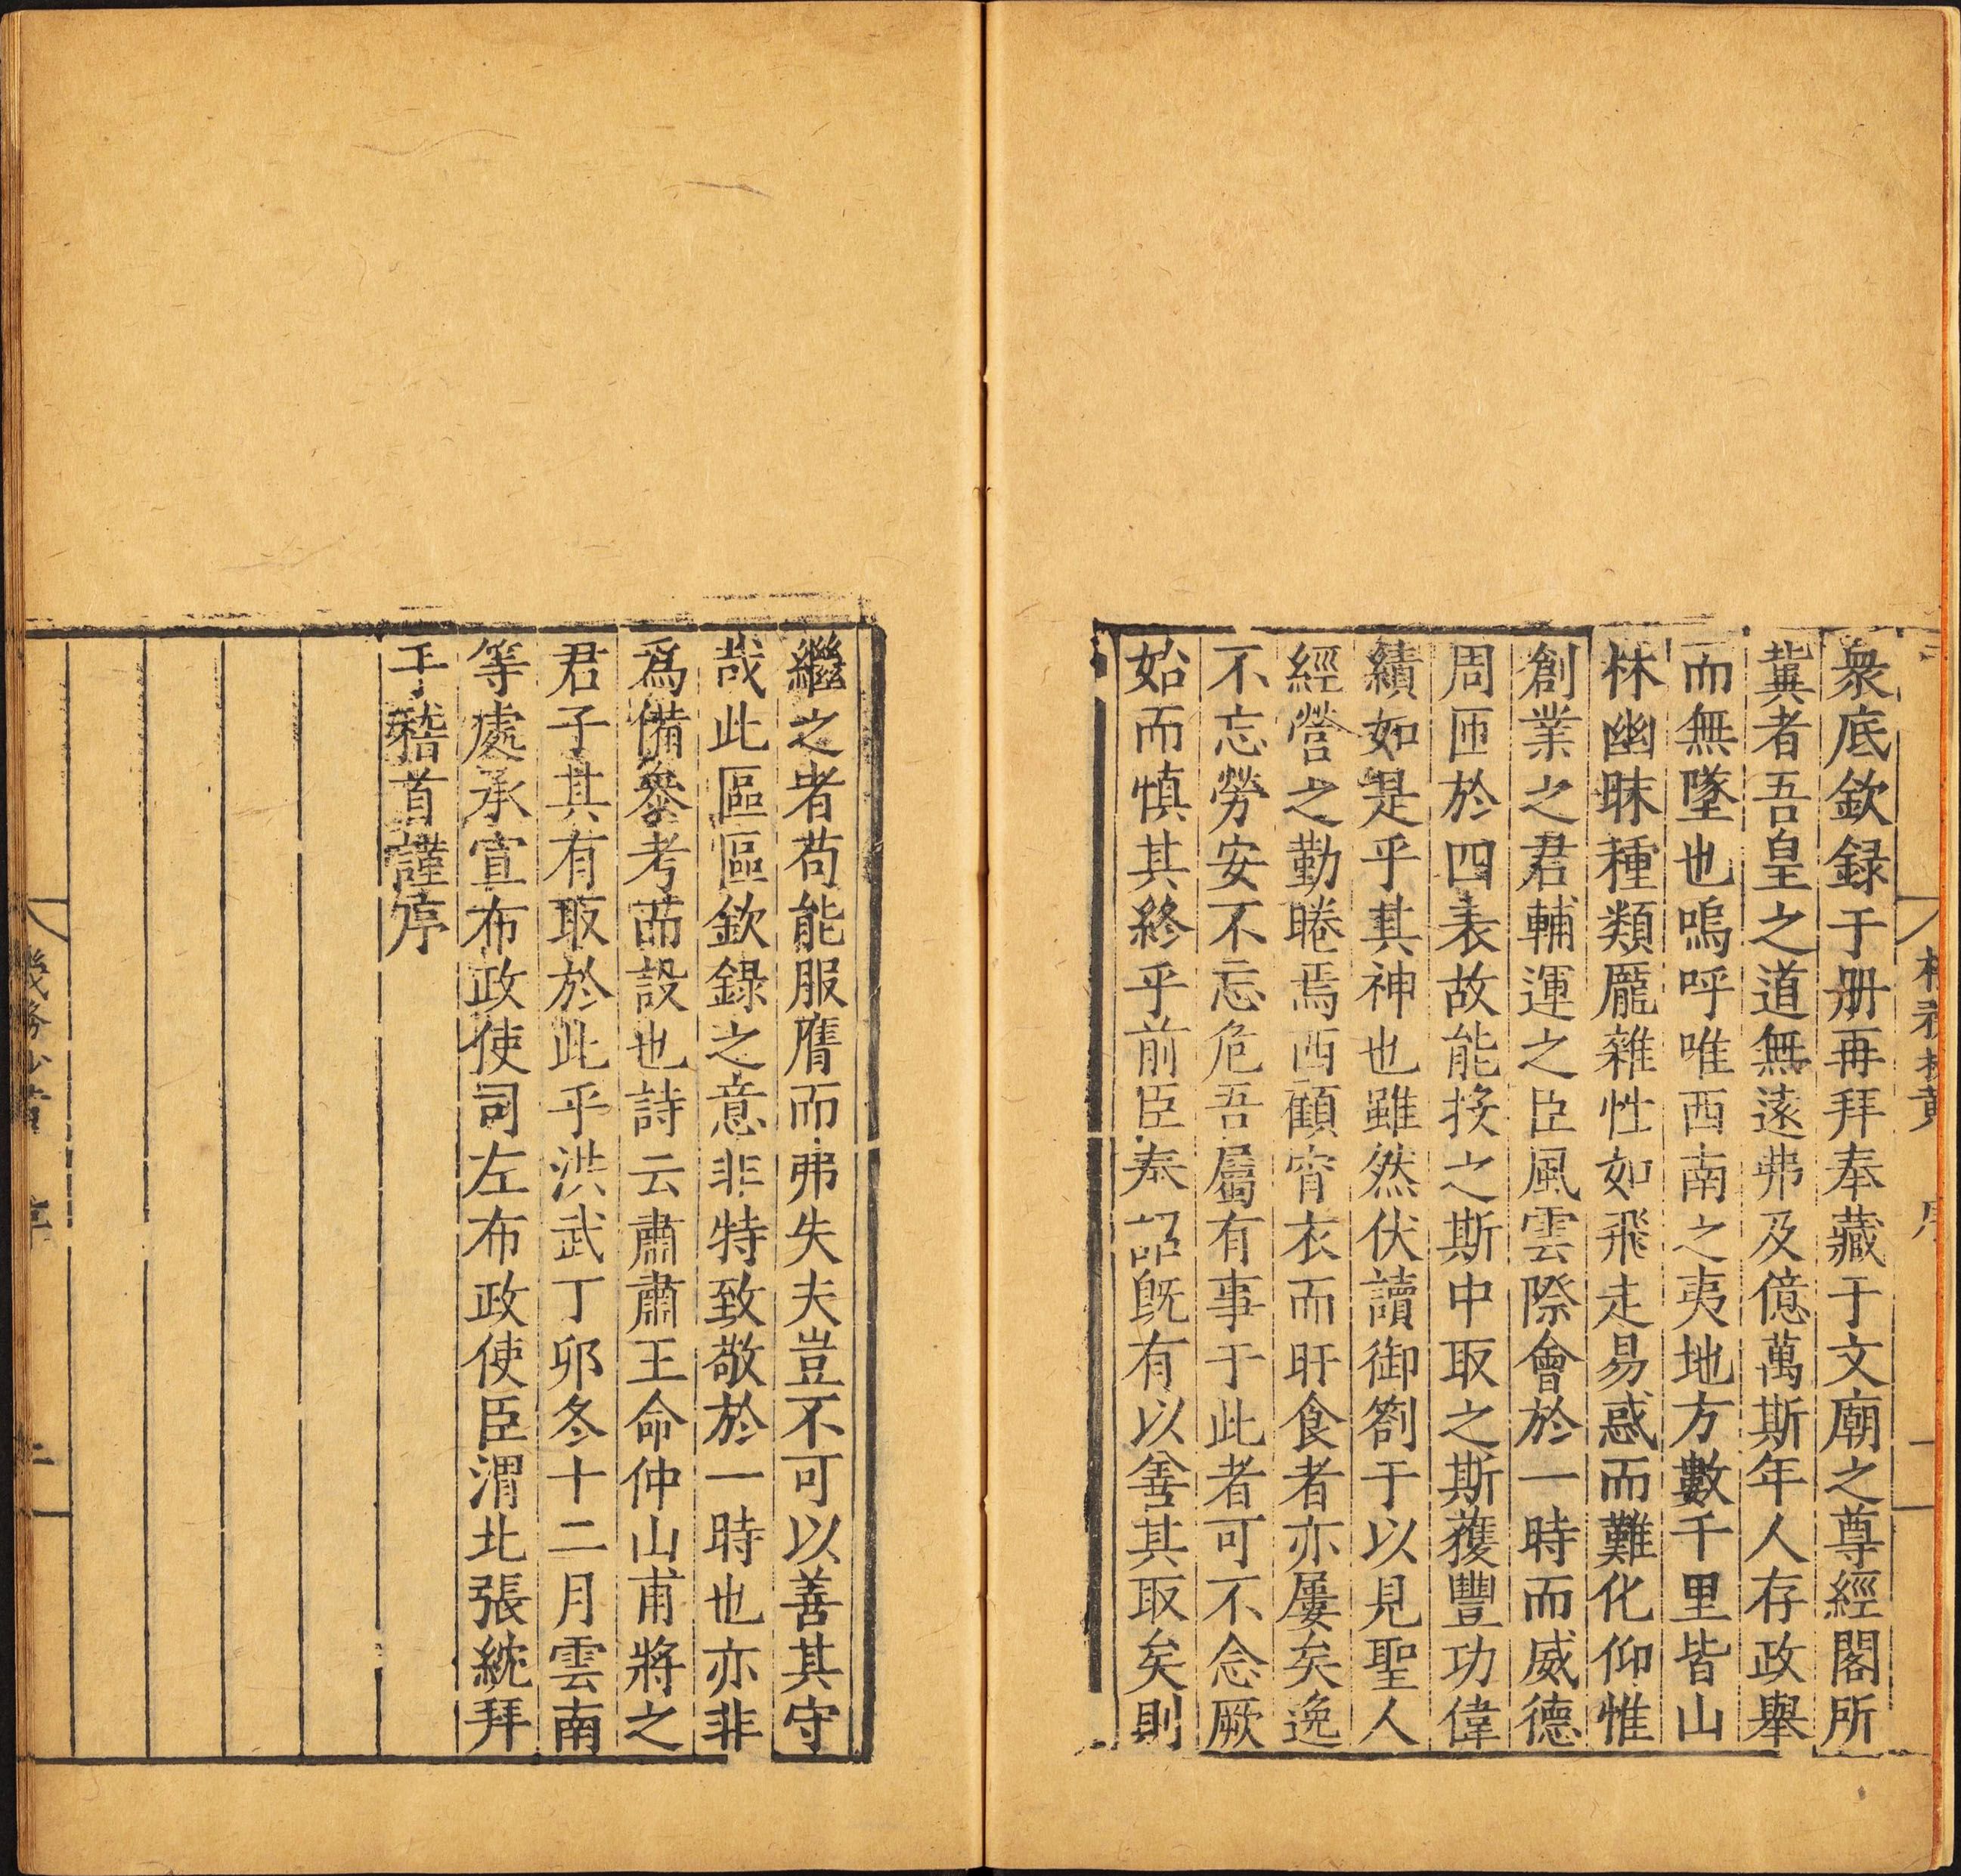 衆底欽録于册再拜奉藏于文廟之尊經閣所
冀者吾皇之道無遠弗及億萬斯年人存政舉
而無墜也嗚呼唯西南之夷地方數千里皆山
林幽昧種類厖雜性如飛走易惑而難化仰惟
創業之君輔運之臣風雲際會於一時而威德
周匝於四表故能挍之斯中取之斯獲豐功偉
績如是乎其神也雖然伏讀御劄于以見聖人
經營之勤睠焉西顧宵衣而旰食者亦屢矣逸
不忘勞安不忘危吾屬有事于此者可不念厥
始而慎其終乎前臣奉詔旣有以善其取矣則
繼之者苟能服膺而弗失夫豈不可以善其守
哉此區區欽錄之意非特致敬於一時也亦非
爲備參考而設也詩云肅肅王命仲山甫將之
君子其有取於此乎洪武丁卯冬十二月雲南
等處承宣布政使司左布政使臣渭北張紞拜
手稽首謹序
序